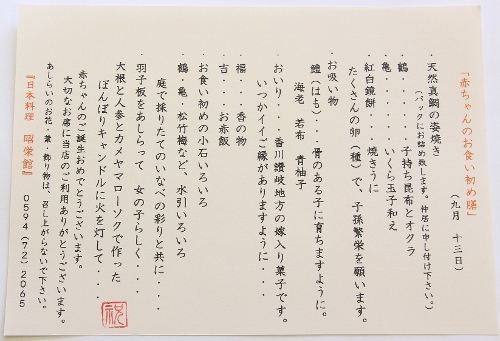 「赤ちゃんのお食い初め膳」
(九月 十三日)
・天然真鯛の姿焼き
(パックにお詰め致します。仲居に申し付け下さい。)
・鶴・・・・・子持ち昆布とオクラ
・亀・・・・・いくら玉子和え
・紅白鏡餅・・・焼きうに
たくさんの卵(種)で、子孫繁栄を願います。
・お吸い物
鱧(はも)・・・骨のある子に育ちますように。
海老 若布 青柚子
・おいり・・・香川讃岐地方の嫁入り菓子です。
いつかイイご縁がありますように・・・・
・福・・・香の物
・吉・・・お赤飯
・お食い初めの小石いろいろ
・鶴・亀・松竹梅など、水引いろいろ
庭で採りたてのいなべの彩りと共に・・・・
・羽子板をあしらって 女の子らしく・・・
大根と人参とカメヤマローソクで作った
ぼんぼりキャンドルに火を灯して・・・
赤ちゃんのご誕生おめでとうございます。
大切なお席に当店のご利用ありがとうございます。
あしらいのお花・葉・飾り物は、召し上がらないで下さい。
『日本料理 昭栄館』 0594(72)2065
祝